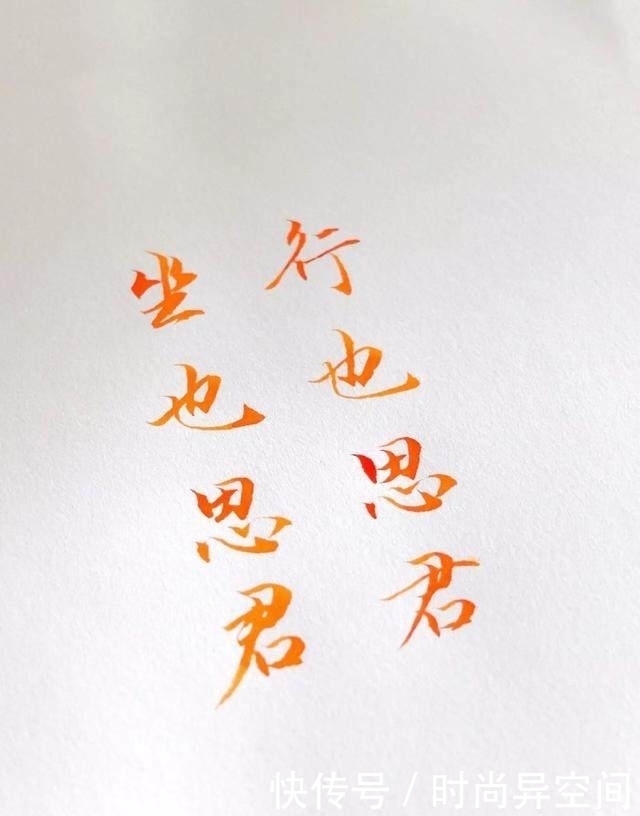 行也思君
坐也思君
快传号/时尚异空间